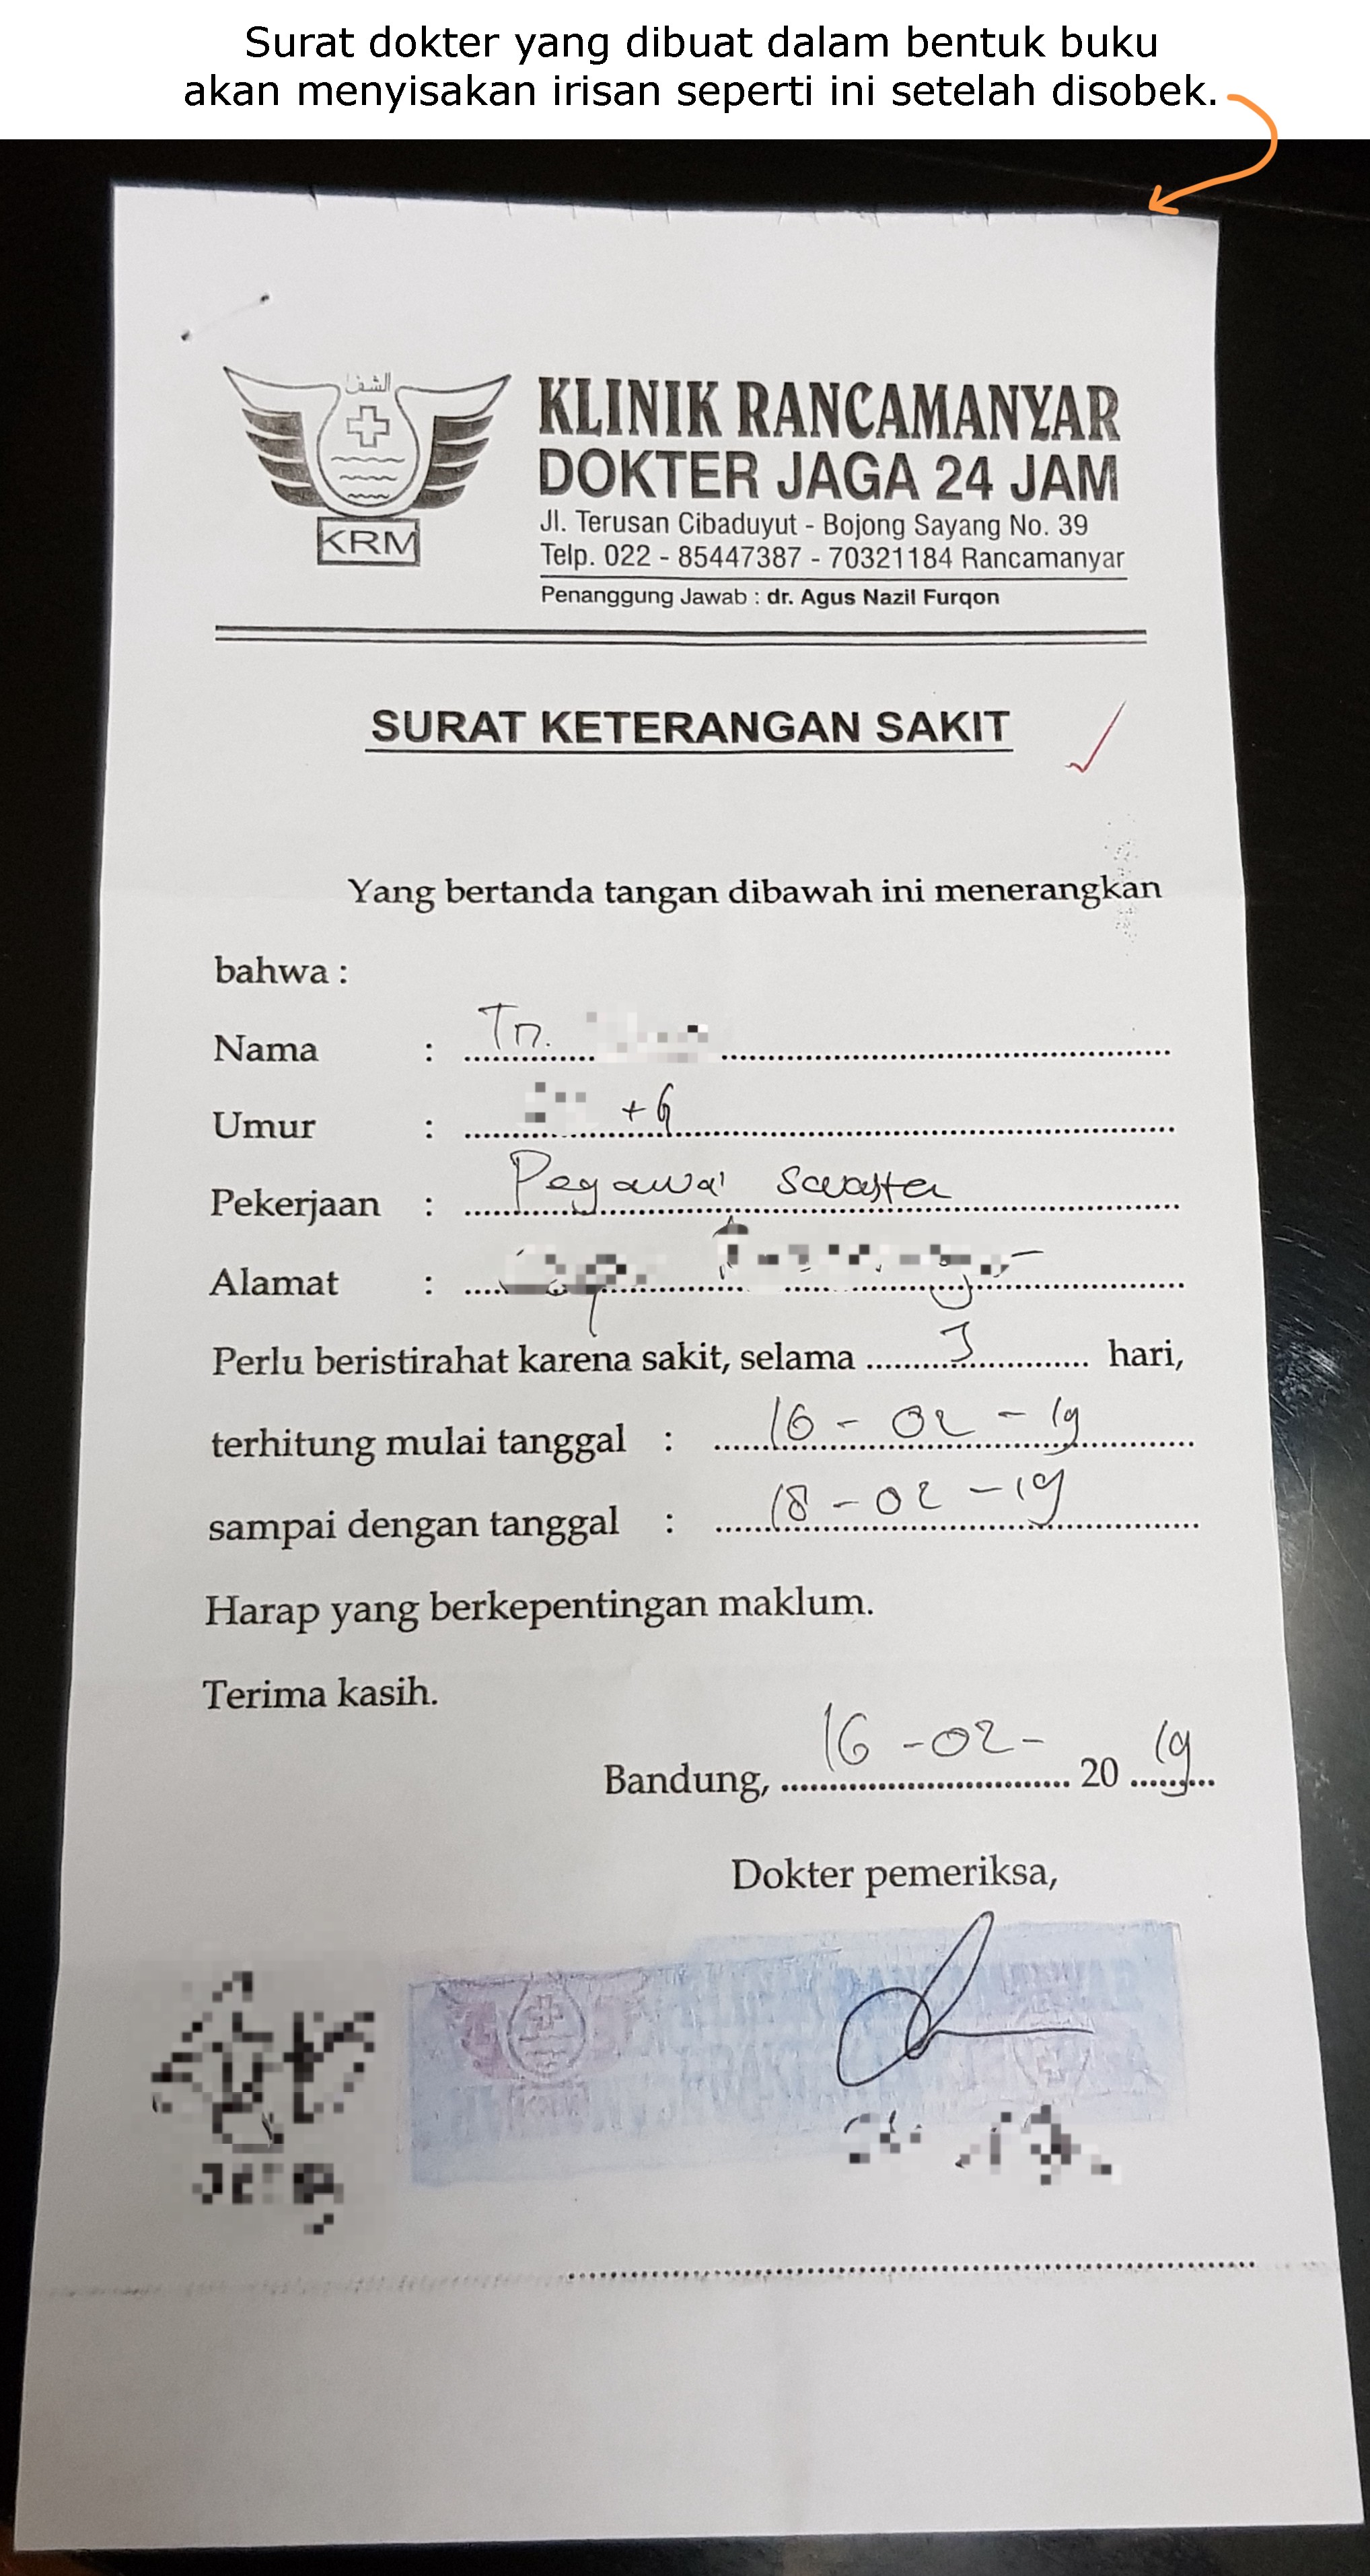 Surat dokter yang dibuat dalam bentuk buku
akan menyisakan irisan seperti ini setelah disobek.
KLINIK RANCAMANYAR
DOKTER JAGA 24 JAM
KRM
Jl. Terusan Cibaduyut - Bojong Sayang No. 39
Telp. 022 - 85447387 - 70321184 Rancamanyar
Penanggung Jawab : dr. Agus Nazil Furqon
SURAT KETERANGAN SAKIT
Yang bertanda tangan dibawah ini menerangkan
bahwa :
Nama : Tn.
Umur :
Pekerjaan : Pegawai Swasta
Alamat :
Perlu beristirahat karena sakit, selama 3 hari,
terhitung mulai tanggal : 16 - 02 - 19
sampai dengan tanggal : 18 - 02 - 19
Harap yang berkepentingan maklum.
Terima kasih.
Bandung, 16 - 02 - 20 19
Dokter pemeriksa,